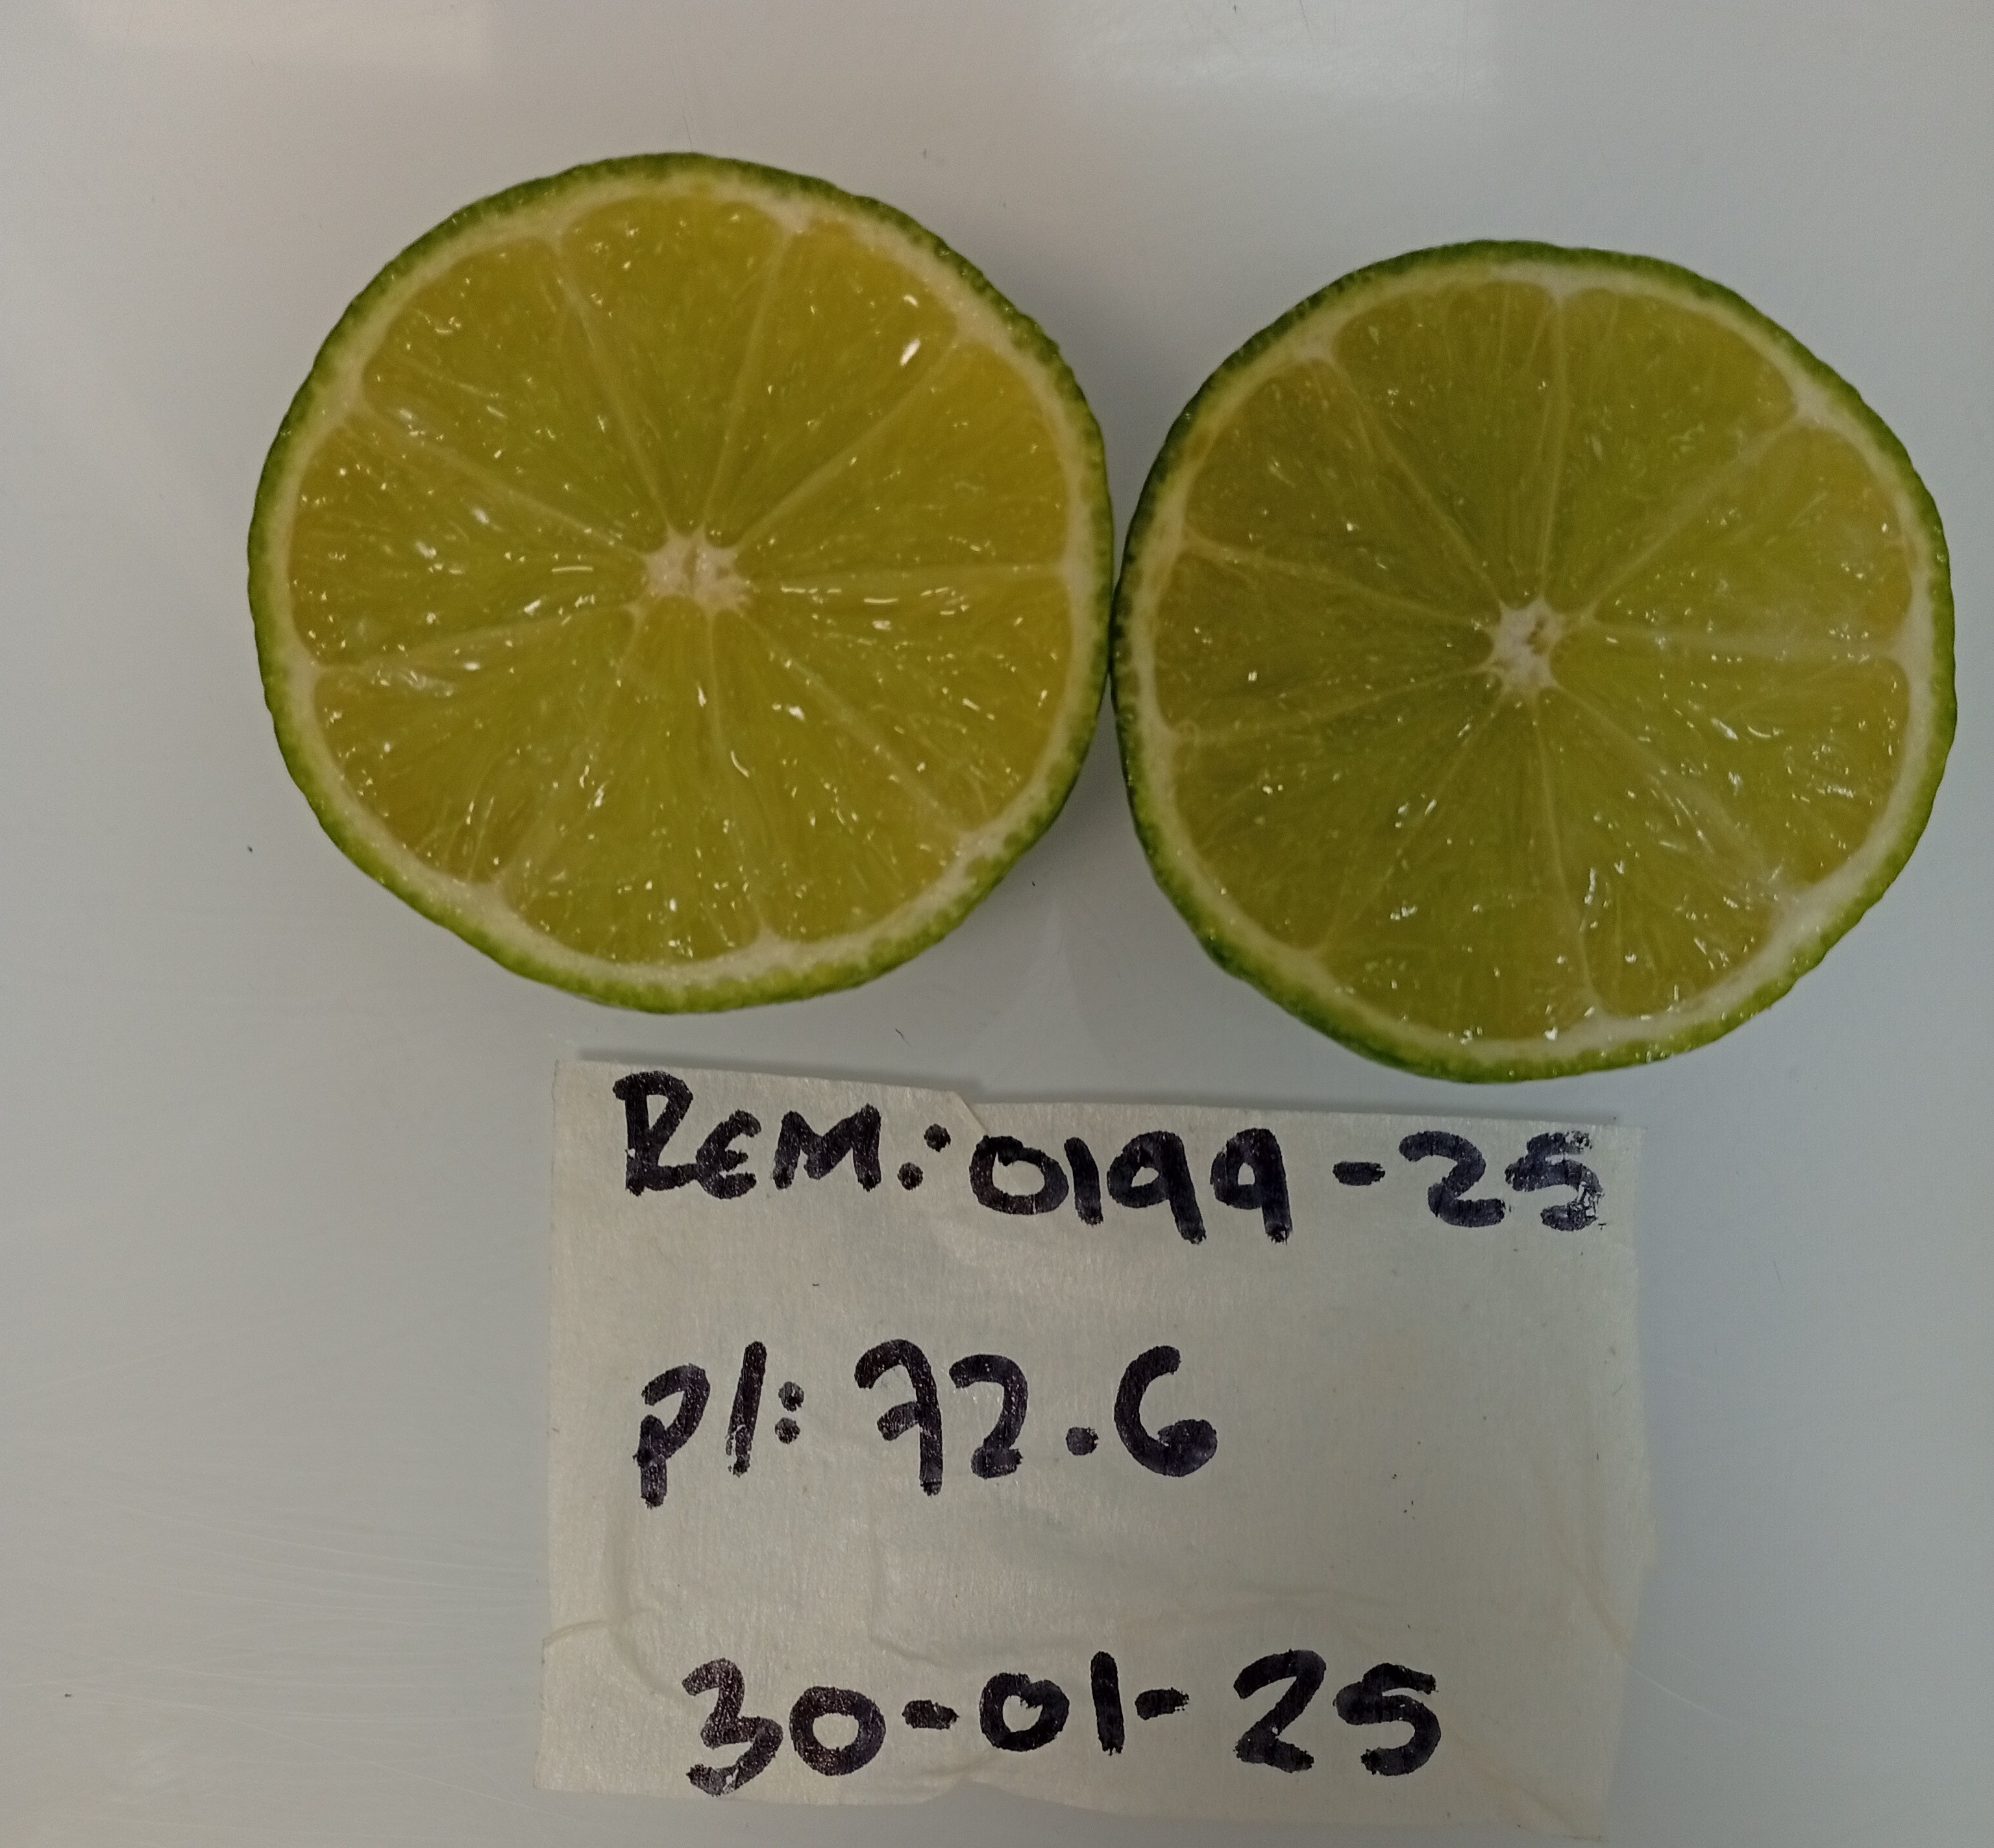 REM: 0199-25
P1: 72.6
30-01-25